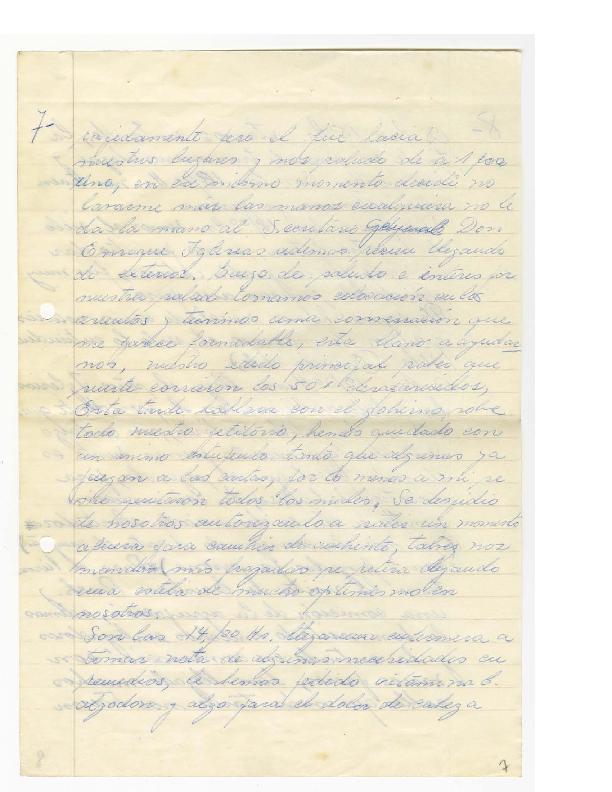 7-
pero el fue hacia
nuestros lugares y nos saludo de a 1 por
uno, en ese mismo momento decidi no
lavarme mas las manos cualquiera no le
da la mano al Secretario General Don
Enrique Iglesias recien llegando
del exterior. Luego de saludo e interes por
nuestra salud tomamos en los
asientos y tuvimos una conversación que
me parece formidable, esta llano a ayudar
nos, nuestro pedido principal saber que
suerte corrieron los 50 desaparecidos,
Esta tarde hablara con el gobierno sobre
todo nuestro petitorio, hemos quedado con
un animo estupendo tanto que algunos ya
juegan a las cartas, por lo menos a mi se
me quitaron todos los miedos, Se despidio
de nosotros autorizando a salir un momento
afuera para cambio de ambiente, tal vez nos
mas se retira dejando
una estela de mucho optimismo en
nosotros.
Son las 14,30 Hs. llega una enfermera a
tomar nota de algunas necesidades en
remedios, le hemos pedido vitamina C.
algodon y algo para el dolor de cabeza
7
8